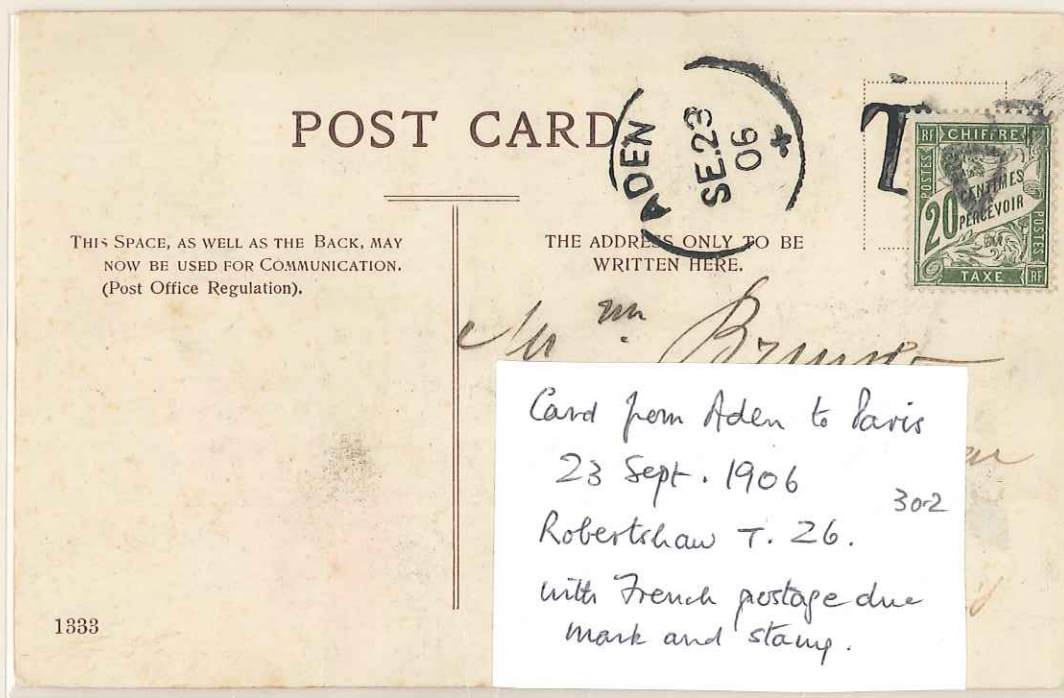 POST CARD
ADEN
SE.23
06
T
RF CHIFFRE
POSTES
20 CENTIMES
PERCEVOIR
POSTES
TAXE RF
THIS SPACE, AS WELL AS THE BACK, MAY
NOW BE USED FOR COMMUNICATION.
(Post Office Regulation).
THE ADDRESS ONLY TO BE
WRITTEN HERE.
Card from Aden to Paris
23 Sept. 1906
302
Robertshaw T. 26.
with French postage due
mark and stamp.
1333